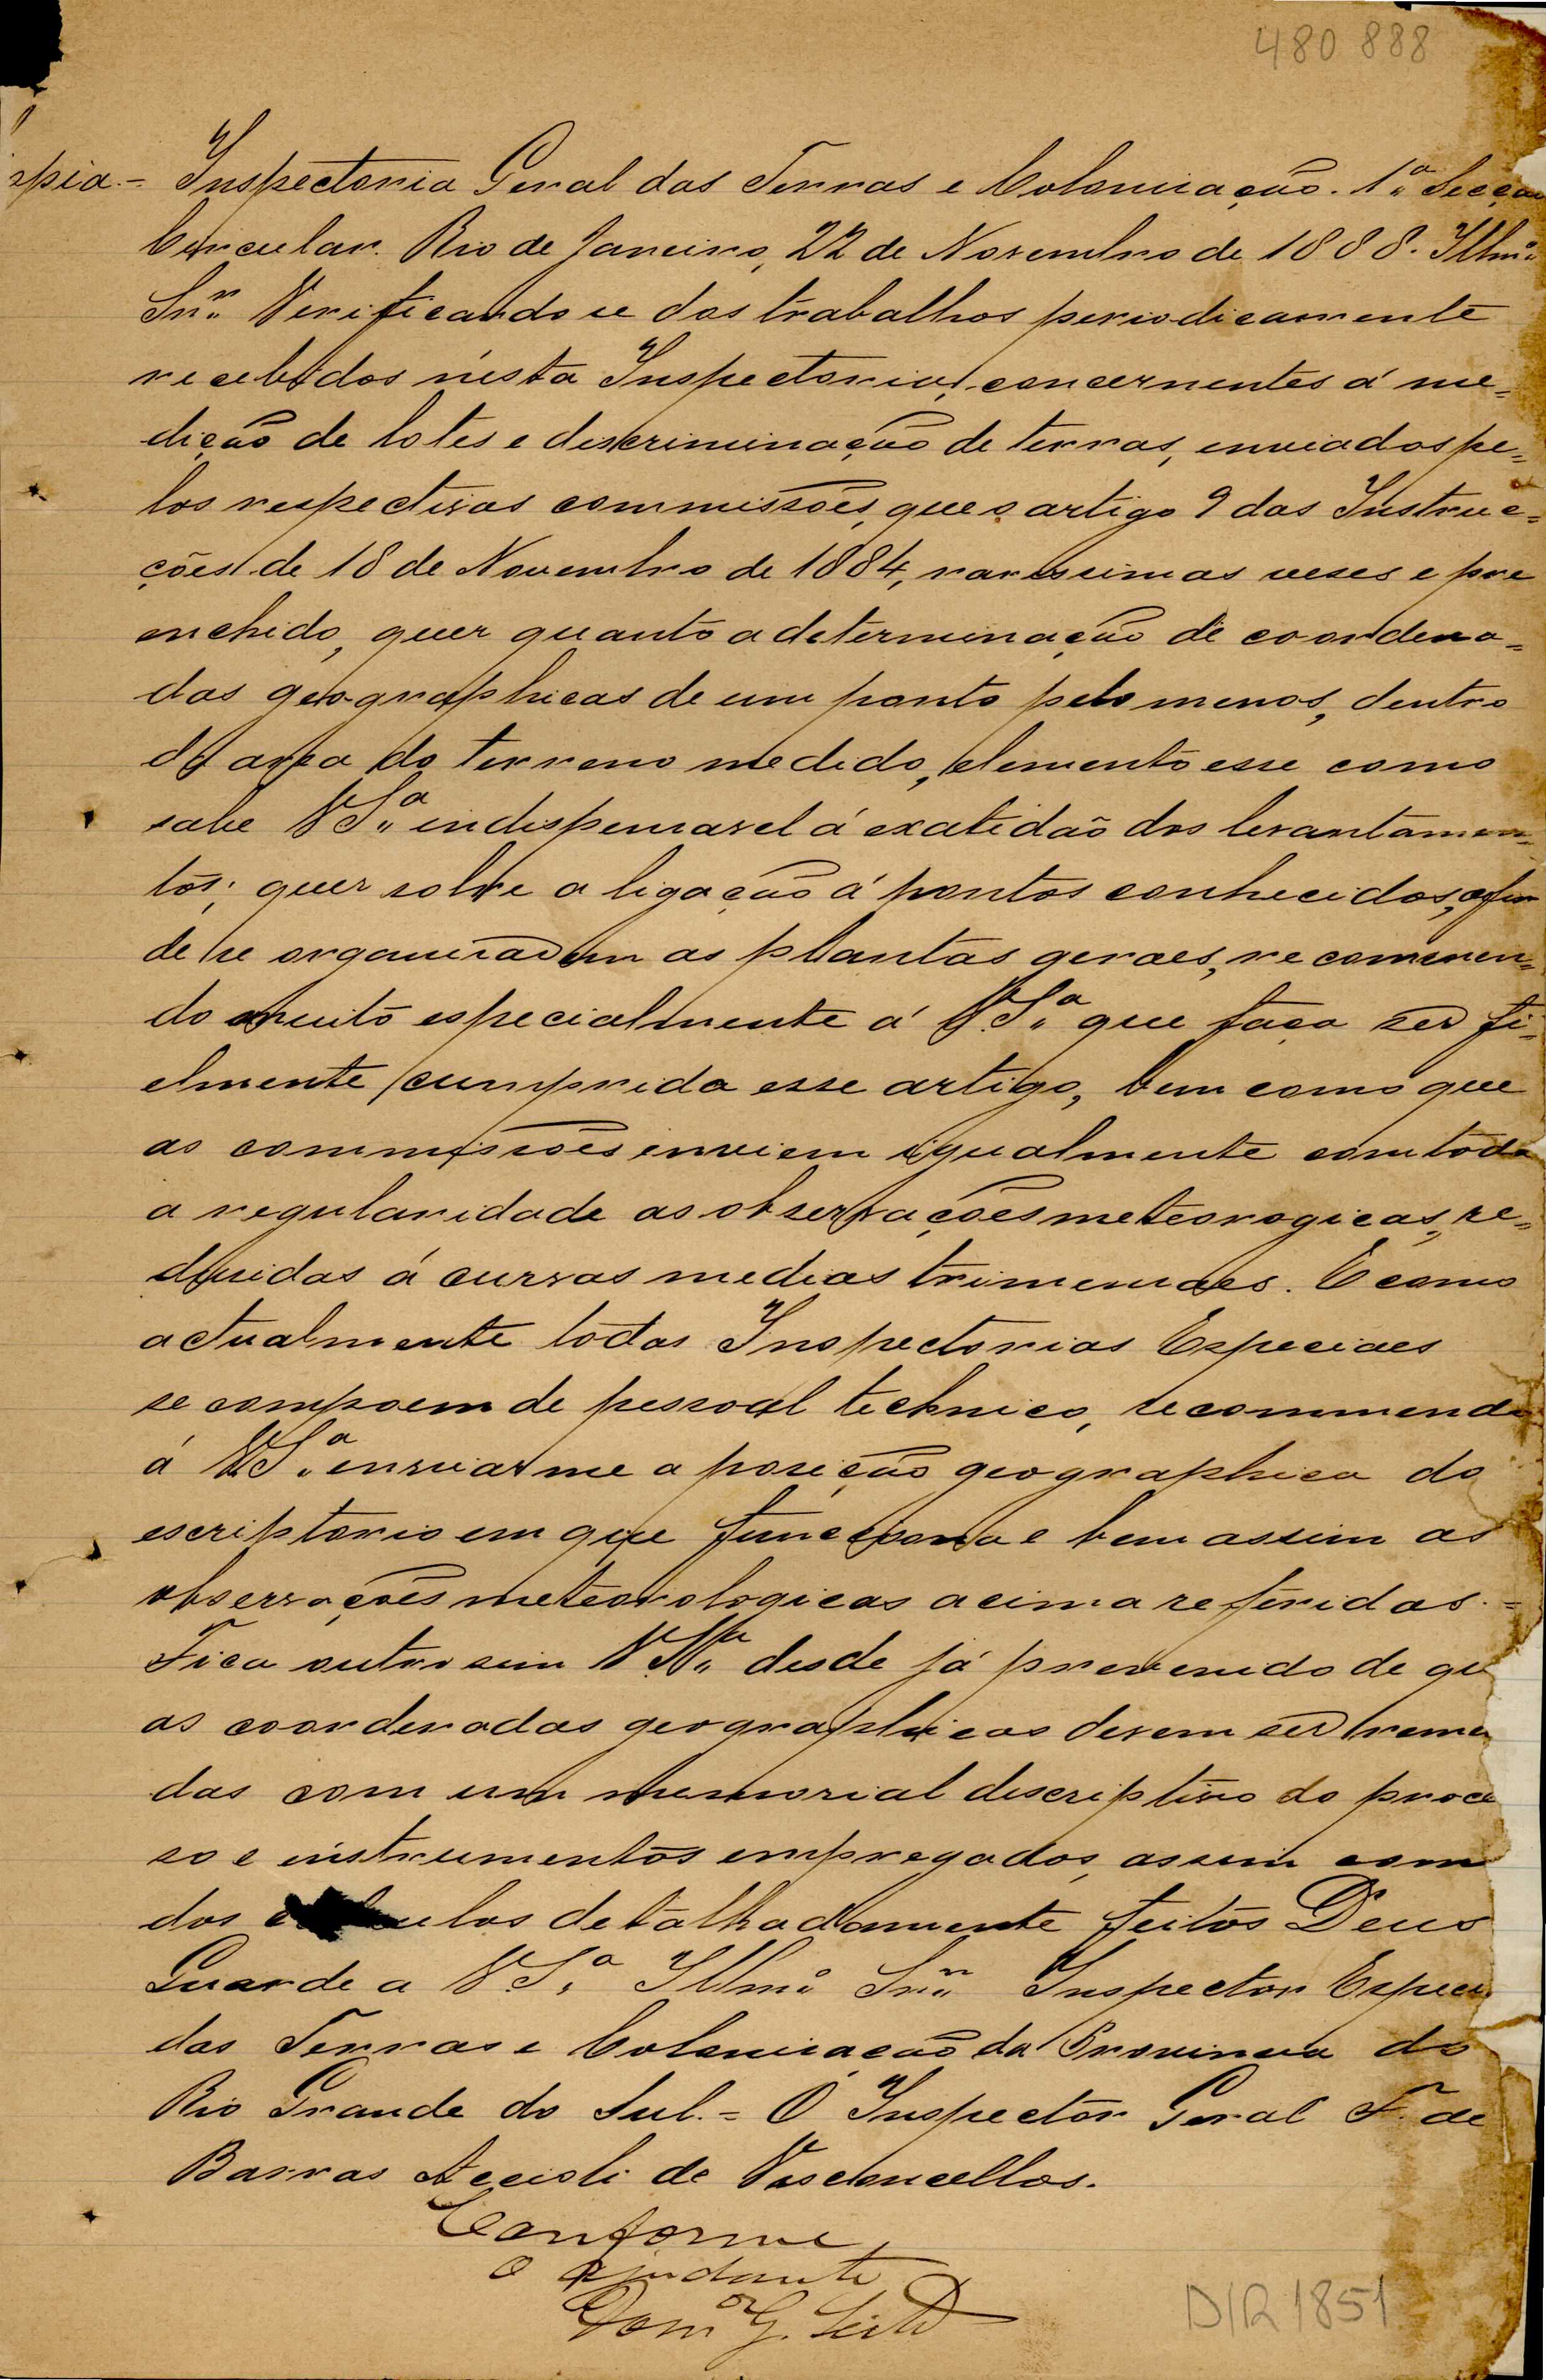 480 888
opia.- Inspectoria Geral das Terras e Colonisação. 1ª Secção
Circular. Rio de Janeiro, 22 de Novembro de 1888. Illmº
Snr. Verificando se dos trabalhos periodicamente
recebidos n'esta Inspectoria, concernentes á me=
dição de lotes e descriminação de terras, enviados pe=
las respectivas commissões, que o artigo 9 das Instruc=
ções de 18 de Novembro de 1884, rarissimas veses e pre
enchido, quer quanto a determinação de coordena=
das geographicas de um ponto pelo menos, dentro
da area do terreno medido, elemento esse como
sabe V.Sª indispensavel á exatidão dos levantamen=
tos; quer sobre a ligação á pontos conhecidos, afim
de se organisarem as plantas geraes, recommen=
do muito especialmente á V.Sª que faça ser fi=
elmente cumprido esse artigo, bem como que
as commissões enviem igualmente com toda
a regularidade as observações meteorogicas, re=
dusidas á curvas medias trimensaes. E como
actualmente todas Inspectorias Especiaes
se compoem de pessoal technico, recommendo
á V.Sª enviar me a posição geographica do
escriptorio em que funcciona e bem assim as
observações meteorologicas acima referidas.=
Fica outro sim V.Sª desde já prevenido de qu
as coordenadas geographicas devem ser reme
das com um memorial descriptivo do proce
so e instrumentos empregados, assim com
dos calculos detalhadamente feitos Deus
Guarde a V.Sª Illmº Snr. Inspector Especi
das Terras e Colonisação da Provincia do
Rio Grande do Sul.= O Inspector Geral F. de
Barros Accioli de Vasconcellos.
Conforme,
O ajudante
Domºˢ G. Leite
DIR 1851